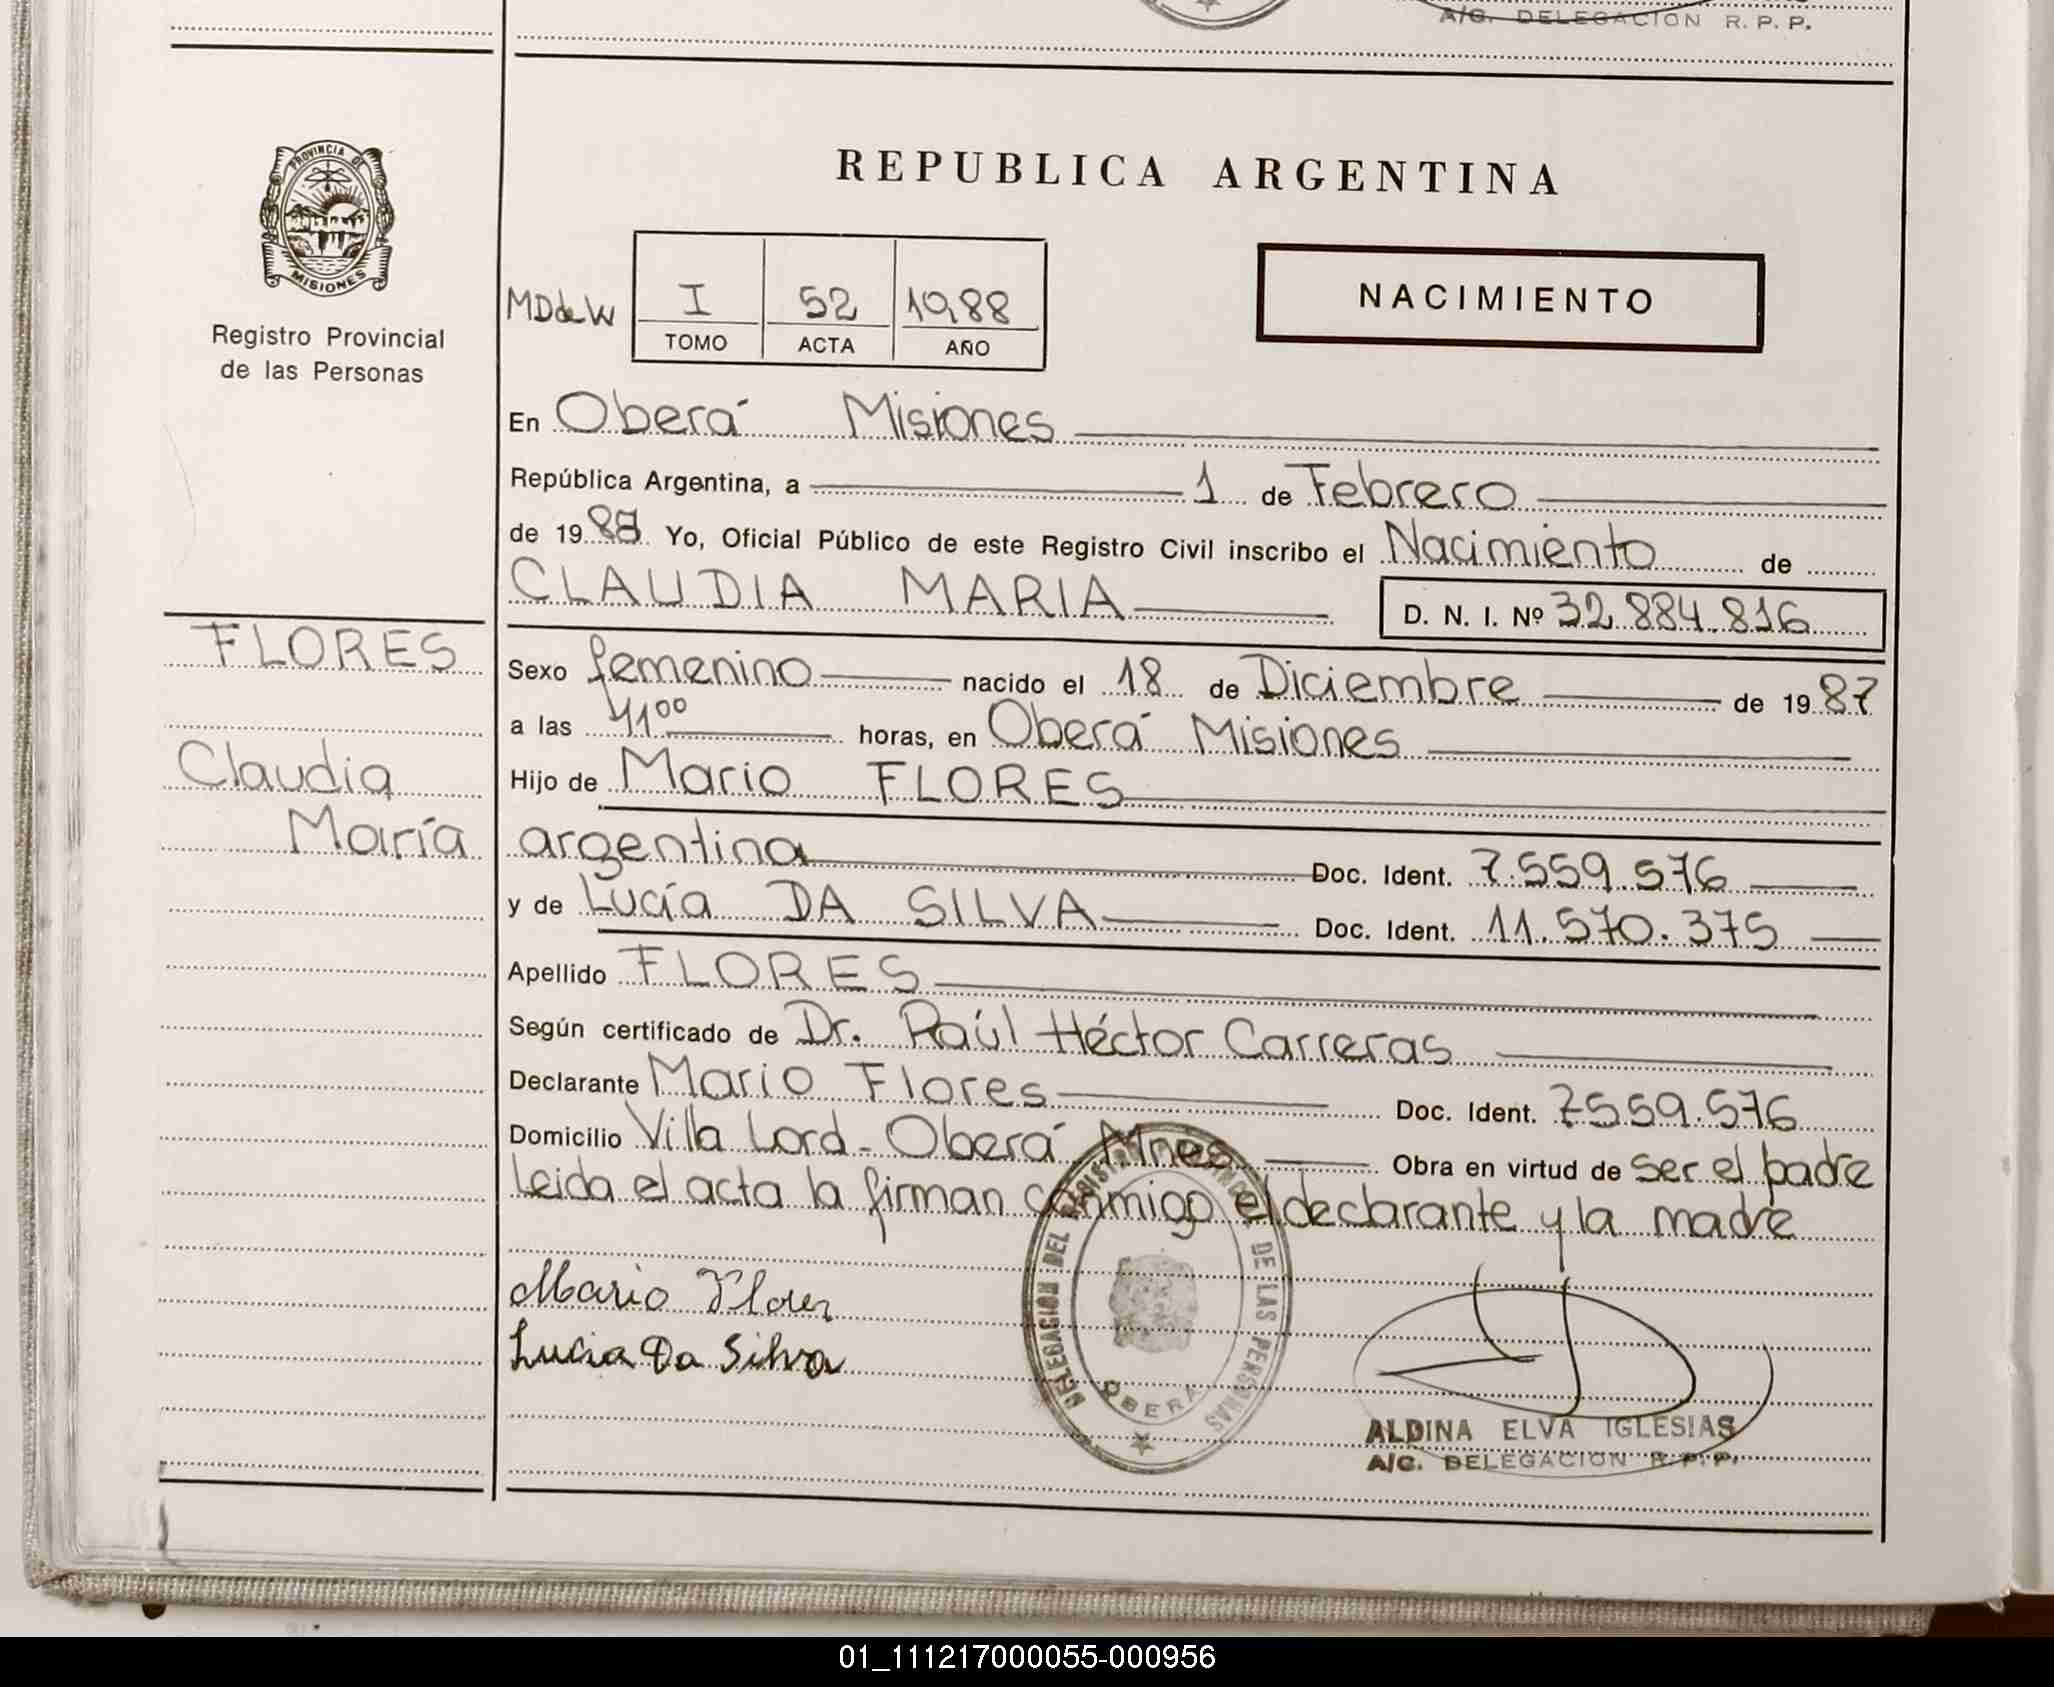 A/C. DELEGACION R. P. P.
PROVINCIA DE
MISIONES
Registro Provincial
de las Personas
REPUBLICA ARGENTINA
MDdeW
I 52 1988
TOMO ACTA AÑO
NACIMIENTO
En Oberá Misiones
República Argentina, a 1 de Febrero
de 1988 Yo, Oficial Público de este Registro Civil inscribo el Nacimiento de
CLAUDIA MARIA D. N. I. Nº 32.884.816
FLORES
Sexo femenino nacido el 18 de Diciembre de 1987
a las 11⁰⁰ horas, en Oberá Misiones
Claudia
Hijo de Mario FLORES
María
argentina Doc. Ident. 7.559.576
y de Lucía DA SILVA Doc. Ident. 11.570.375
Apellido FLORES
Según certificado de Dr. Raúl Héctor Carreras
Declarante Mario Flores Doc. Ident. 7559.576
Domicilio Villa Lord - Oberá Mnes Obra en virtud de ser el padre
Leida el acta la firman conmigo el declarante y la madre
Mario Flores
Lucia Da Silva
DELEGACION DEL REGISTRO PROVINCIAL DE LAS PERSONAS
OBERA
ALDINA ELVA IGLESIAS
A/C. DELEGACION R. P. P.
01_111217000055-000956